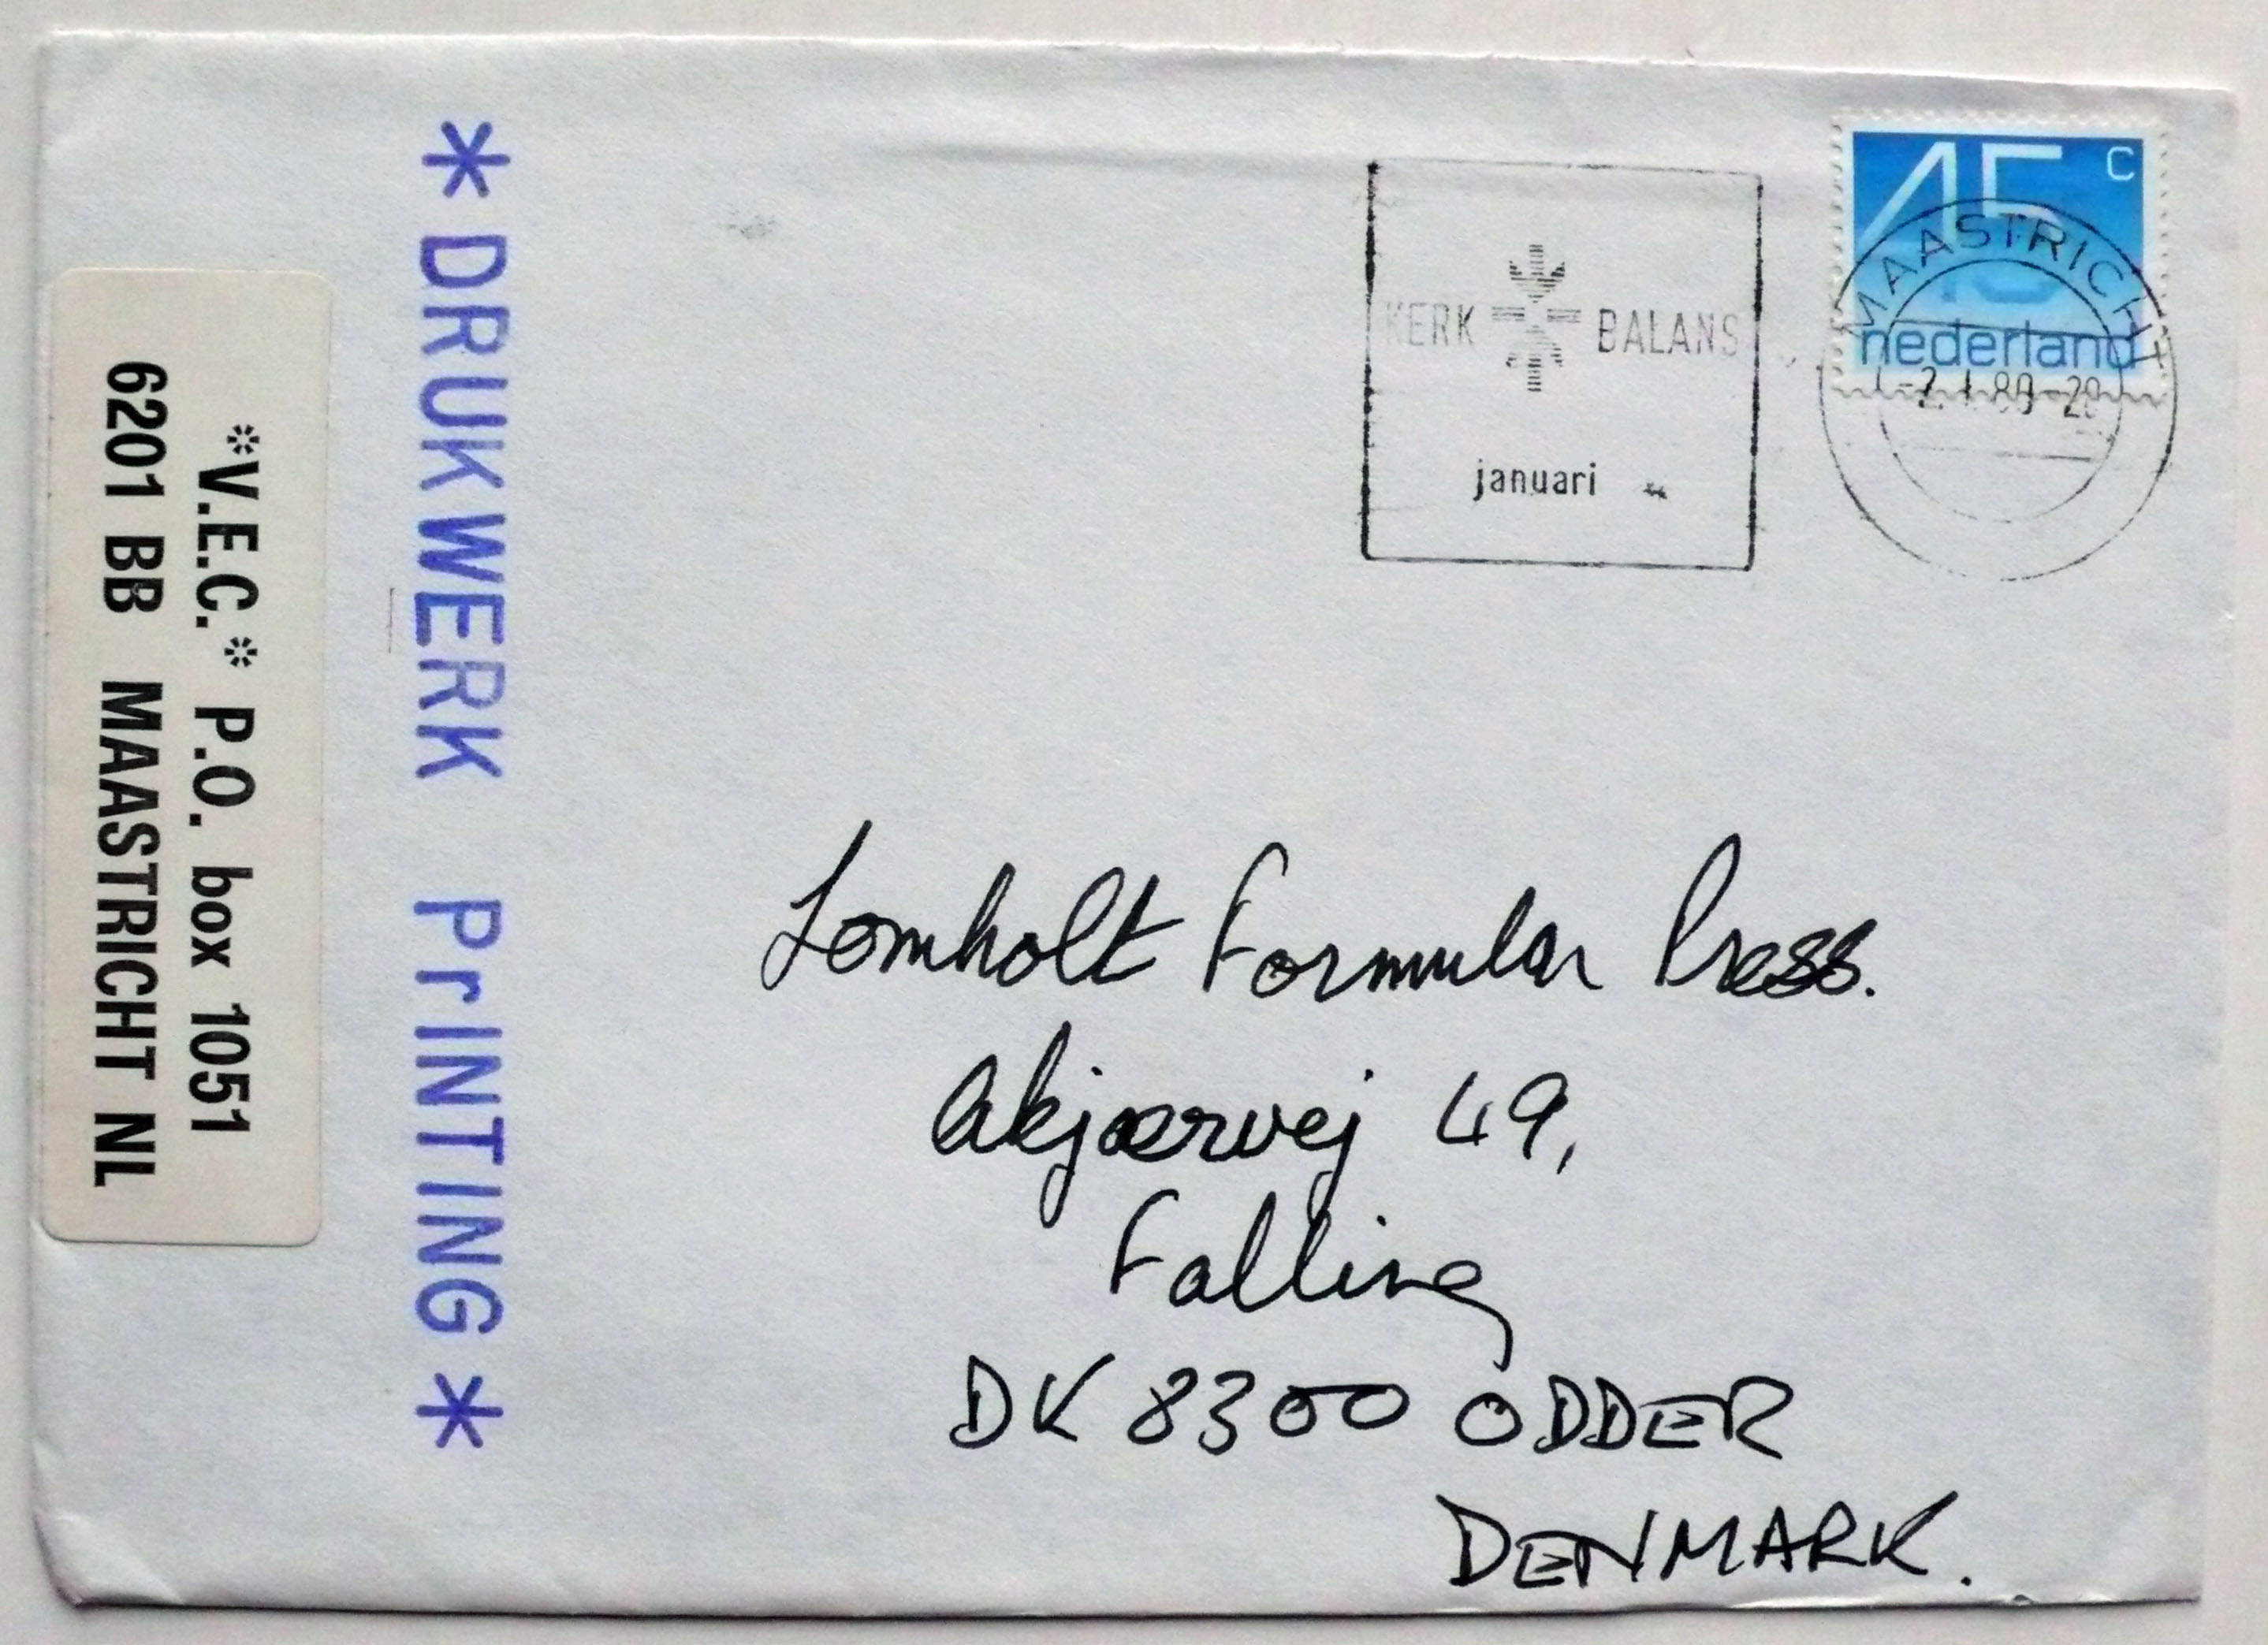 *V.E.C.* P.O. box 1051
6201 BB MAASTRICHT NL
*DRUKWERK PrINTING*
KERK BALANS
januari
45 c
nederland
MAASTRICHT
-2.1.80-20
Lomholt Formular Press.
Akjærvej 49,
Falling
DK 8300 ODDER
DENMARK.